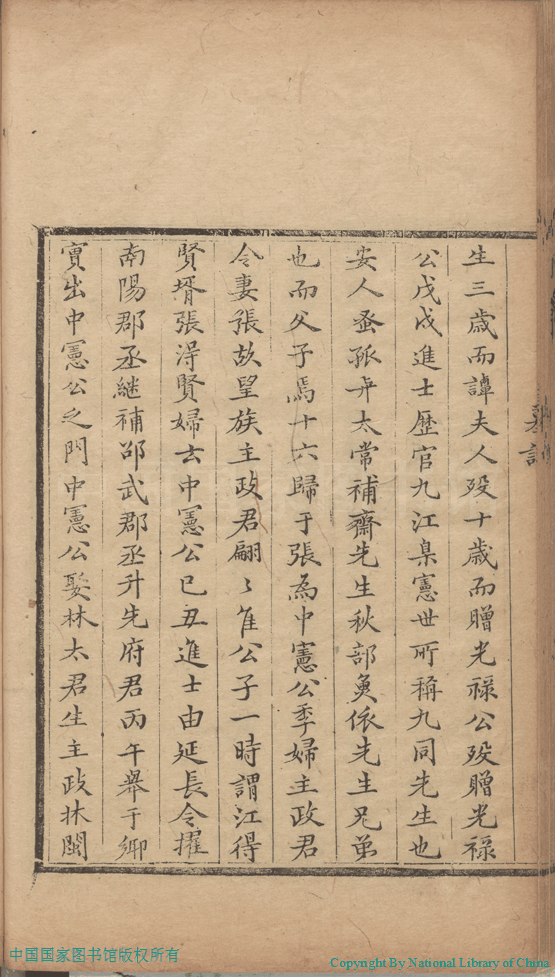 生三歲而譚夫人殁十歲而贈光祿公殁贈光祿
公戊戌進士歷官九江臬憲世所稱九同先生也
安人蚤孤弁太常補齋先生秋部奠依先生兄弟
也而父子焉十六歸于張為中憲公季婦主政君
令妻張故望族主政君翩〻隹公子一時謂江得
賢壻張淂賢婦云中憲公巳丑進士由延長令擢
南陽郡丞継補邵武郡丞升先府君丙午舉于鄉
實出中憲公之門中憲公娶林太君生主政牀閩
中国国家图书馆版权所有
Copyright By National Library of China